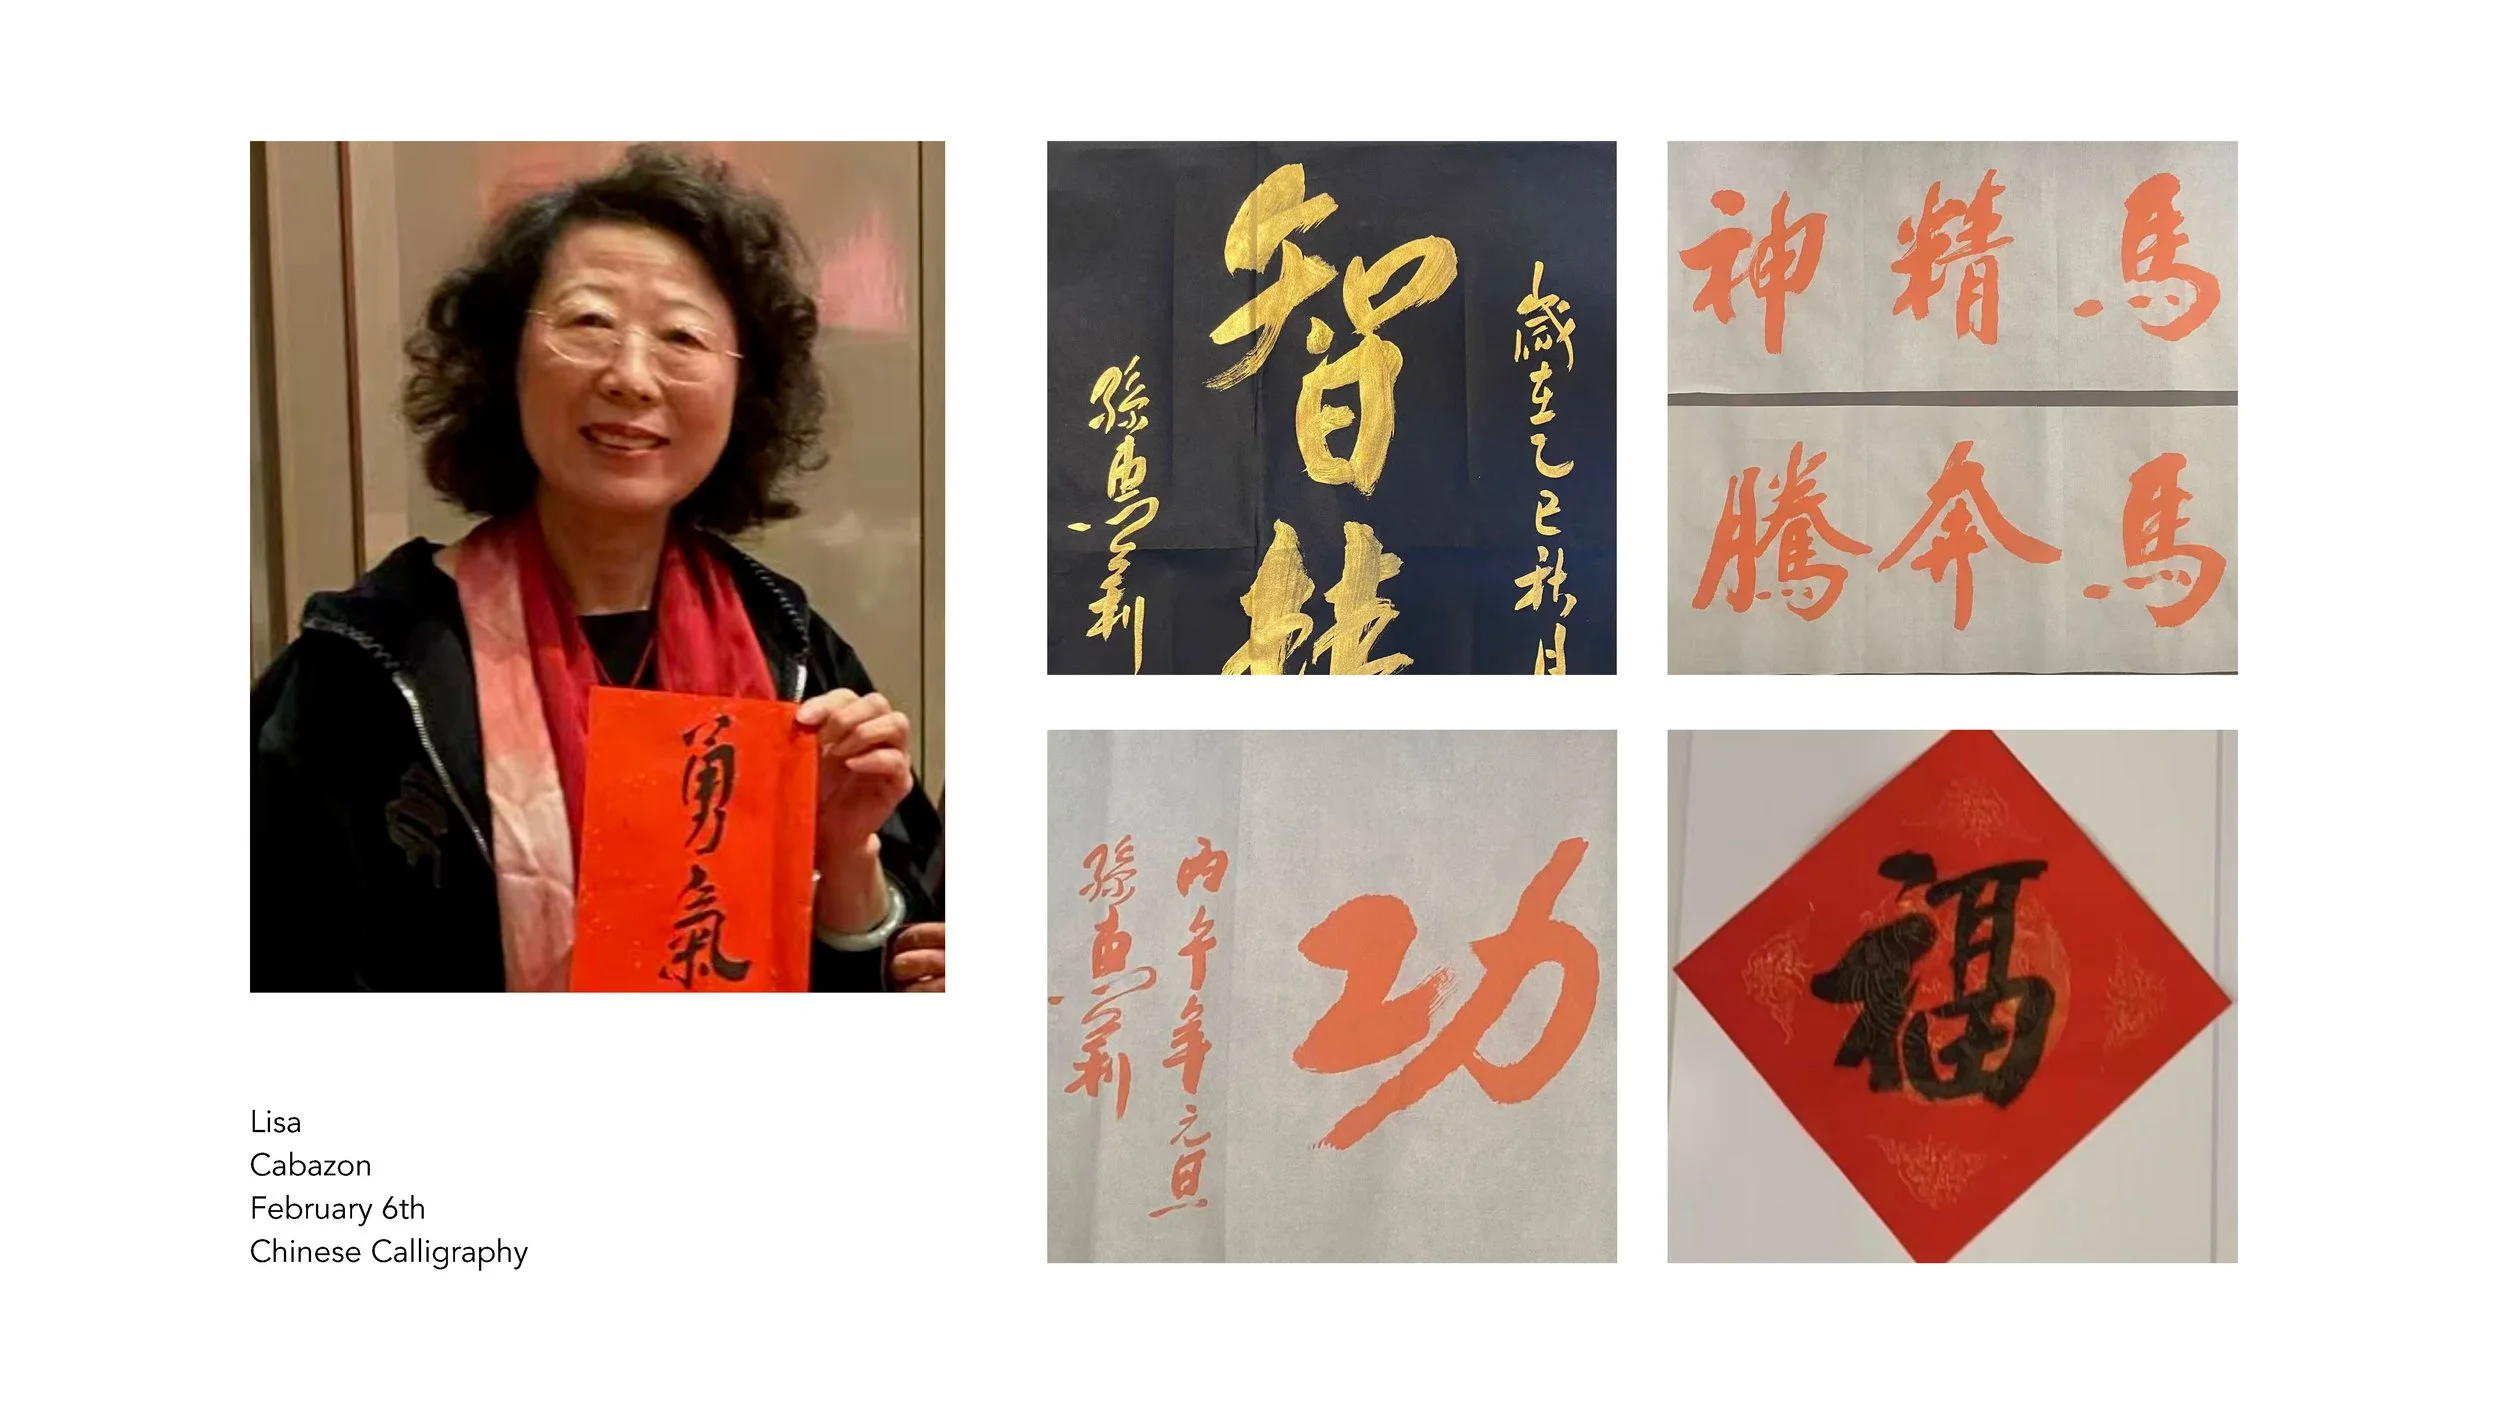 勇氣
歲在乙巳秋月
智
孫惠莉
馬精神
馬奔騰
功
丙午年元旦
孫惠莉
福
Lisa
Cabazon
February 6th
Chinese Calligraphy